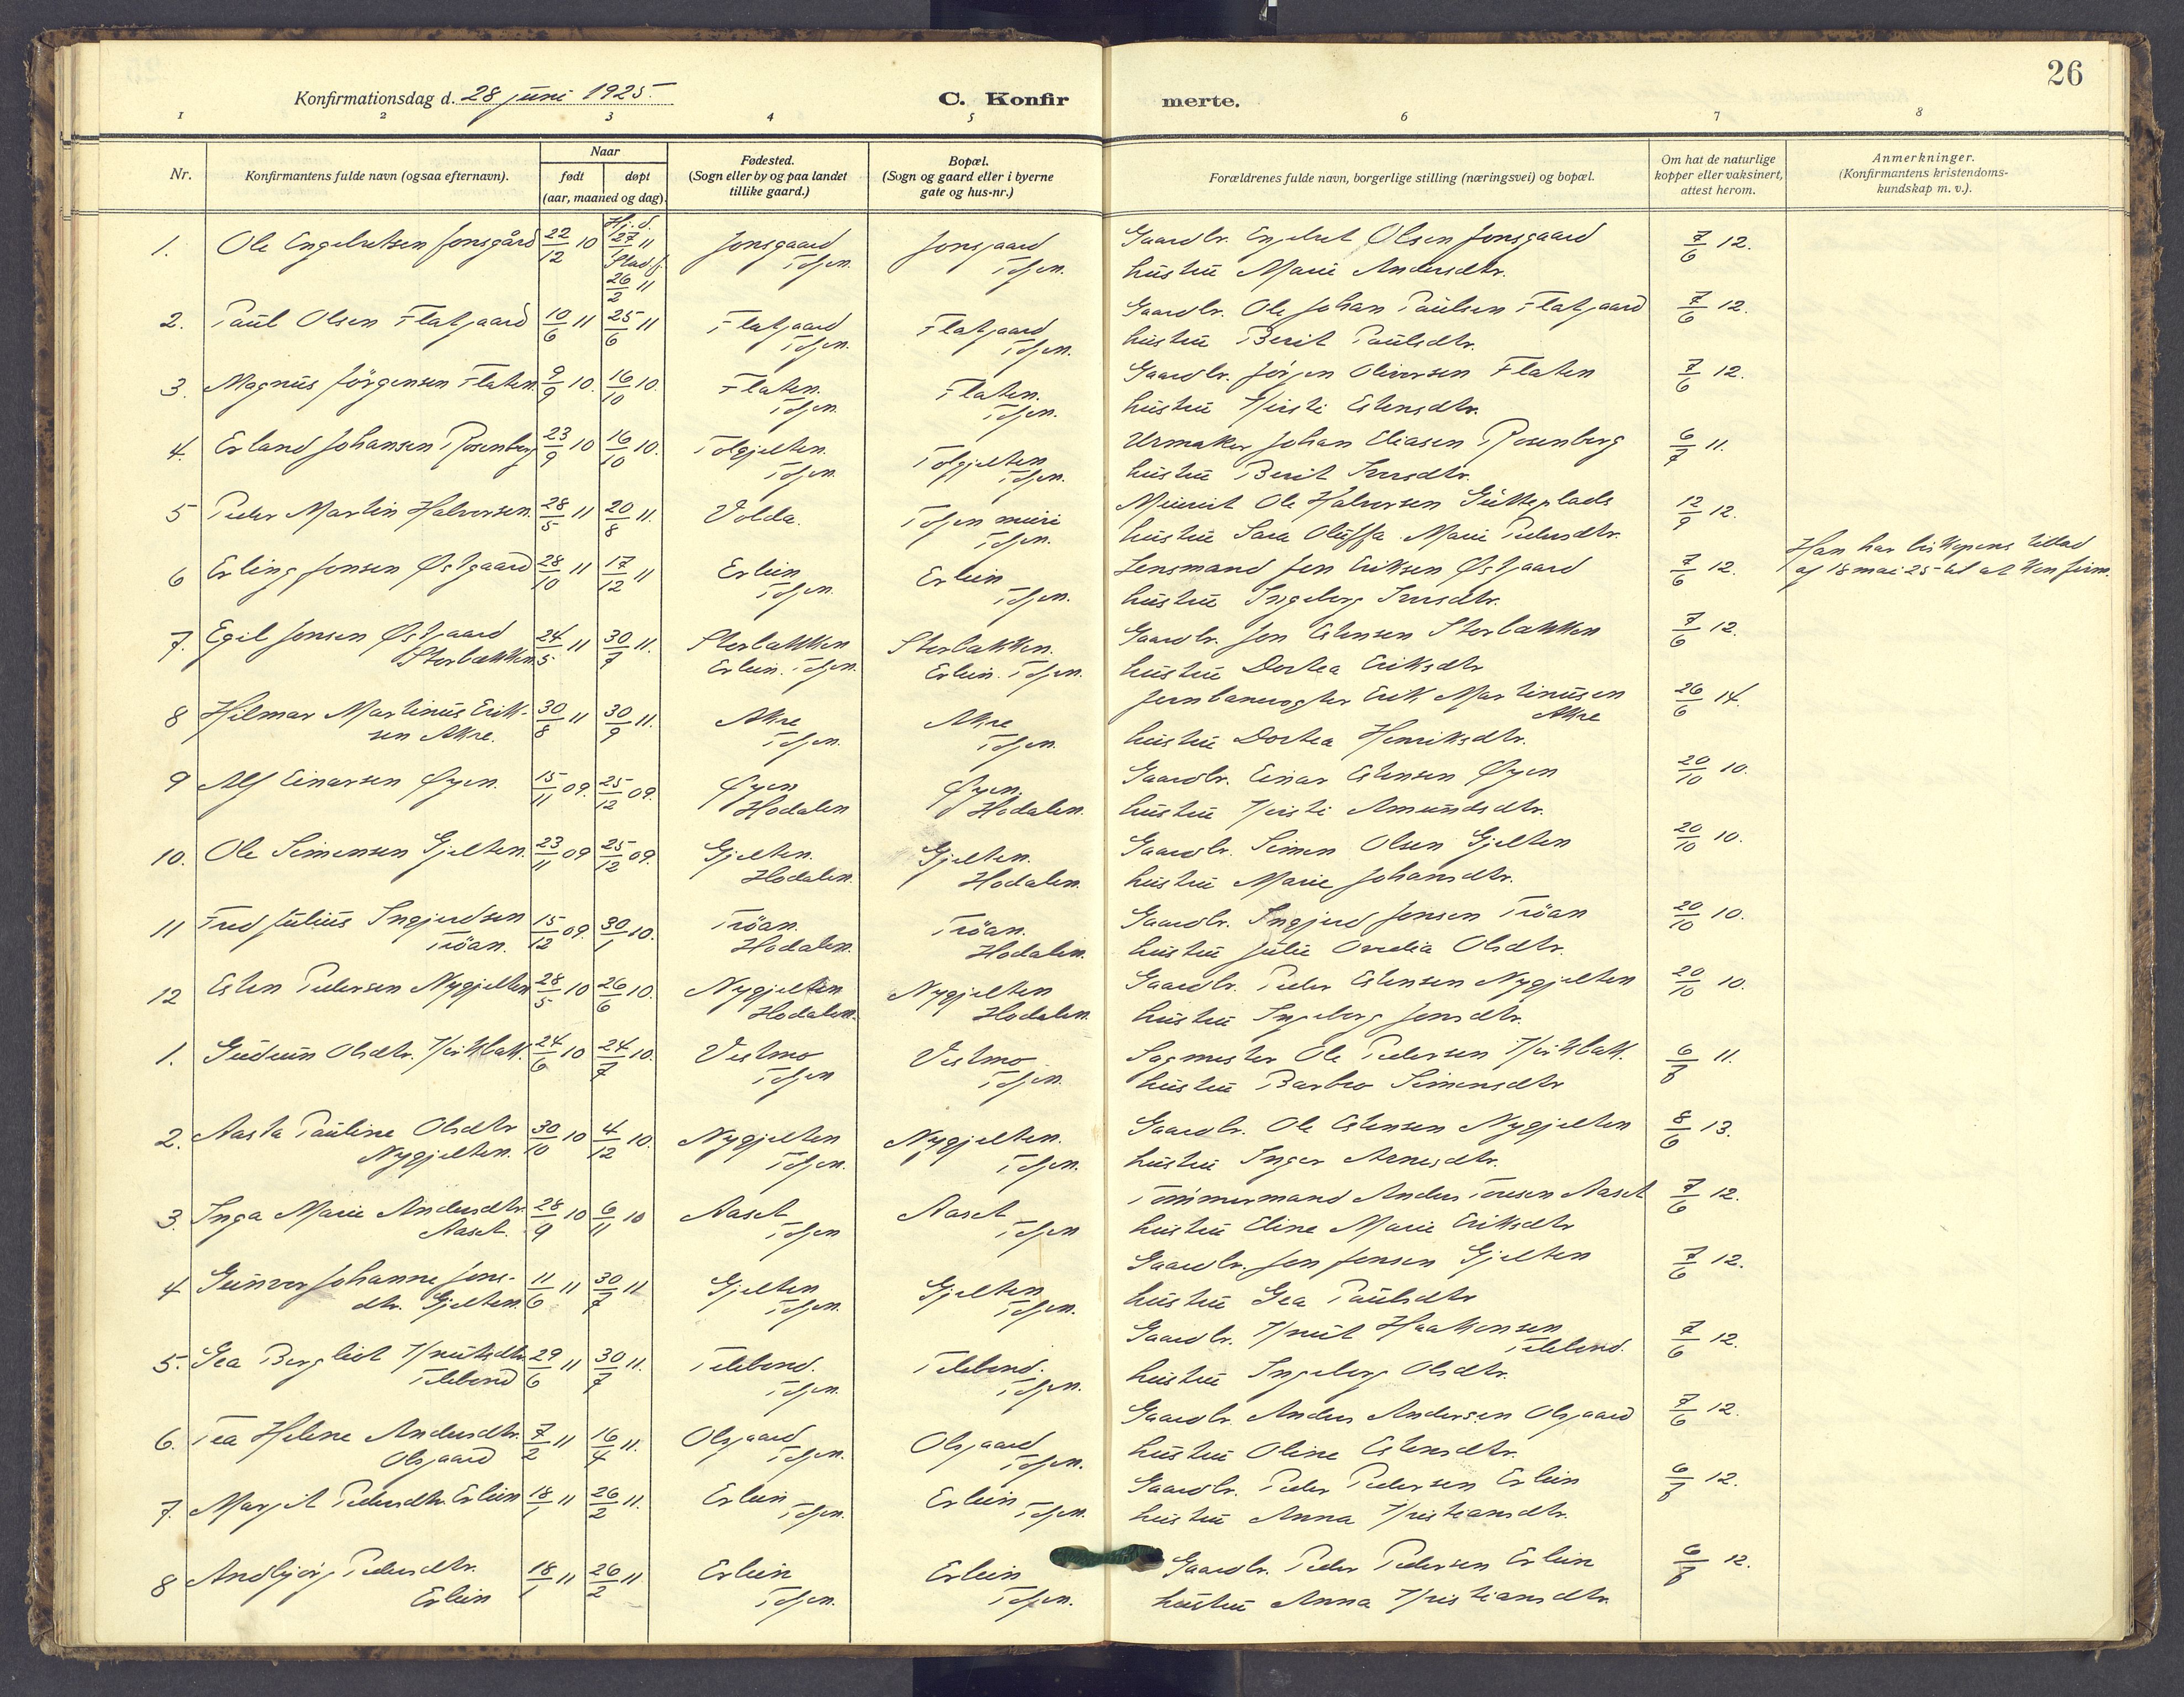 26
Konfirmationsdag d. 28 juni 1925.
C. Konfir merte.
1 2 3 4 5 6 7 8
Nr.
Konfirmantens fulde navn (ogsaa efternavn).
Naar
født døpt
(aar, maaned og dag).
Fødested.
(Sogn eller by og paa landet
tillike gaard.)
Bopæl.
(Sogn og gaard eller i byerne
gate og hus-nr.)
Forældrenes fulde navn, borgerlige stilling (næringsvei) og bopæl.
Om hat de naturlige
kopper eller vaksinert,
attest herom.
Anmerkninger.
(Konfirmantens kristendoms-
kundskap m. v.).
1. Ole Engebretsen Jonsgård 22/12 10 Hj.d. 27/11 Stadf. 26/2 11 Jonsgaard Jonsgaard Gaardbr. Engebret Olsen Jonsgaard 7/6 12.
Tolgen. Tolgen. hustru Marie Andersdtr.
2. Paul Olsen Flatgaard 10/6 11 25/6 11 Flatgaard Flatgaard Gaardbr. Ole Johan Paulsen Flatgaard 7/6 12.
Tolgen. Tolgen. hustru Berit Paulsdtr.
3. Magnus Jörgensen Flaten 9/9 10. 16/10 10. Flaten. Flaten. Gaardbr. Jörgen Oliversen Flaten 7/6 12.
Tolgen. Tolgen. hustru Kirsti Estensdtr.
4. Erland Johansen Rosenberg 23/9 10 16/10 10. Tolgjelten. Tolgjelten Urmaker Johan Eliasen Rosenberg 6/7 11.
Tolgen. Tolgen. hustru Berit Iversdtr.
5 Peder Martin Halvorsen. 28/5 11 20/8 11. Volda. Tolgen meieri Meierist Ole Halvorsen 12/9 12.
Tolgen. hustru Sara Oluffa Marie Pedersdtr.
6 Erling Jonsen Østgaard 28/10 11 17/12 11 Erlien Erlien Lensmand Jon Eriksen Østgaard 7/6 12. Han har biskopens tillad
Tolgen. Tolgen. hustru Ingeborg Iversdtr. af 18 mai 25 til at konfirm.
7. Egil Jonsen Østgaard 24/5 11 30/7 11. Storbakken Storbakken. Gaardbr. Jon Estensen Storbakken 7/6 12.
Storbakken Erlien. Tolgen. Erlien. Tolgen. hustru Dortea Eriksdtr
8 Hilmar Martinus Erik- 30/8 11 30/9 11. Akre Akre Jernbanevogter Erik Martinusen 26/6 14.
sen Akre. Tolgen. Tolgen. Akre
hustru Dortea Henriksdtr.
9 Alf Einarsen Øyen. 15/11 09. 25/12 09. Øyen Øyen. Gaardbr. Einar Estensen Øyen 20/10 10.
Hodalen Hodalen. hustru Kirsti Amundsdtr.
10. Ole Simensen Gjelten. 23/11 09 25/12 09. Gjelten. Gjelten. Gaardbr. Simen Olsen Gjelten 20/10 10.
Hodalen. Hodalen. hustru Marie Johansdtr.
11 Fred Julius Ingjerdsen 15/12 09. 30/1 10. Tröan. Tröan. Gaardbr. Ingjerd Jonsen Tröan 20/10 10.
Tröan. Hodalen. Hodalen. hustru Julie Ovedia Olsdtr.
12 Esten Pedersen Nygjelten 28/5 10 26/6 10. Nygjelten Nygjelten Gaardbr. Peder Estensen Nygjelten 20/10 10.
Hodalen. Hodalen. hustru Ingeborg Jonsdtr.
1. Gudrun Olsdtr. Kirkbak. 24/6 10 24/7 10. Vestmo Vestmo Sagmester Ole Pedersen Kirkbak. 6/8 11.
Tolgen Tolgen. hustru Barbro Simensdtr
2. Aasta Pauline Olsdtr 30/10 10 4/12 10. Nygjelten Nygjelten. Gaardbr. Ole Estensen Nygjelten 8/6 13.
Nygjelten. Tolgen. Tolgen. hustru Inger Arnesdtr.
3. Inga Marie Andersdtr. 28/9 10 6/11 10 Aaset Aaset Tömmermand Anders Toresen Aaset 7/6 12.
Aaset. Tolgen Tolgen hustru Eline Marie Eriksdtr
4 Gunvor Johanne Jons- 11/6 11 30/7 11 Gjelten Gjelten Gaardbr. Jon Jonsen Gjelten 7/6 12.
dtr. Gjelten. Tolgen. Tolgen. hustru Gea Paulsdtr
5. Gea Bergliot Knutsdtr. 29/6 11 30/7 11. Telebond. Telebond. Gaardbr. Knut Haakensen 7/6 12.
Telebond Tolgen. Tolgen. Telebond.
hustru Ingeborg Olsdtr.
6. Tea Helene Andersdtr. 7/2 11 16/4 11. Olsgaard Olsgaard Gaardbr. Anders Andersen Olsgaard 7/6 12.
Olsgaard Tolgen. Tolgen. hustru Oline Estensdtr.
7. Margit Pedersdtr. Erlien 18/1 11 26/2 11. Erlien Erlien Gaardbr. Peder Pedersen Erlien 6/8 12.
Tolgen. Tolgen. hustru Anna Kristiansdtr.
8 Andbjörg Pedersdtr. 18/1 11 26/2 11 Erlien Erlien Gaardbr. Peder Pedersen Erlien 6/8 12.
Erlien Tolgen. Tolgen. hustru Anna Kristiansdtr.